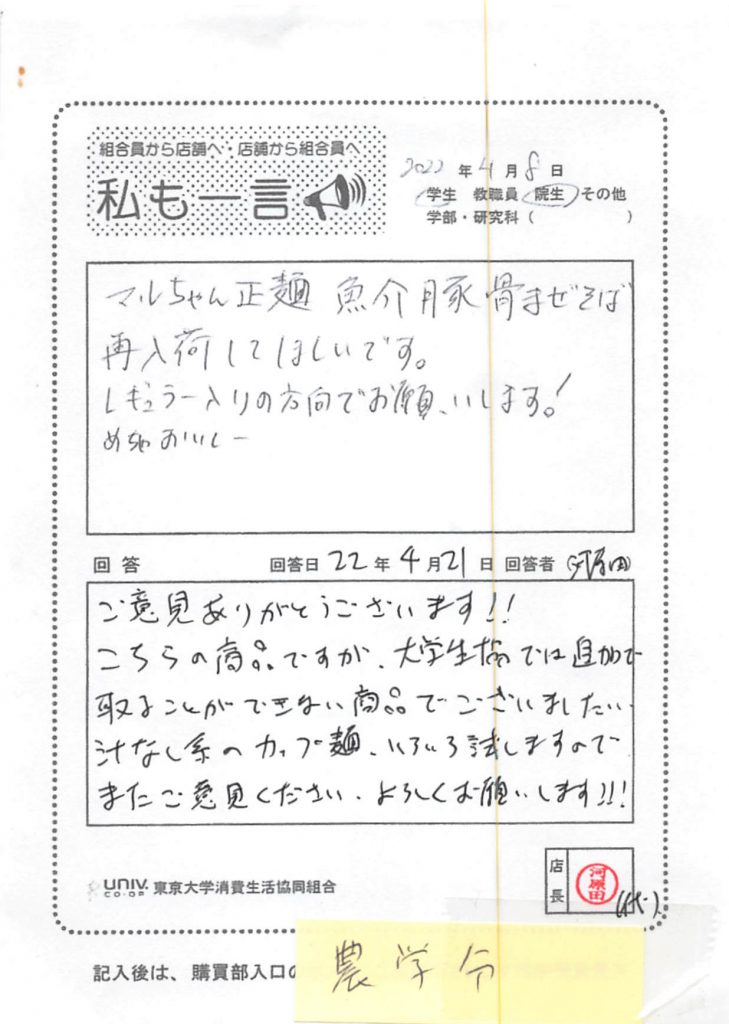 組合員から店舗へ・店舗から組合員へ
私も一言
2022 年 4 月 8 日
学生 教職員 院生 その他
学部・研究科( )
マルちゃん正麺 魚介豚骨まぜそば
再入荷してほしいです。
レギュラー入りの方向でお願いします!
めちゃおいしー
回答 回答日 22 年 4 月 21 日 回答者 河原田
ご意見ありがとうございます!!
こちらの商品ですが、大学生協では追加で
取ることができない商品でございました…
汁なし系のカップ麺、いろいろ試しますので
またご意見ください。よろしくお願いします!!!
UNIV. CO-OP 東京大学消費生活協同組合
店長 河原田 (代)
記入後は、購買部入口の
農学部